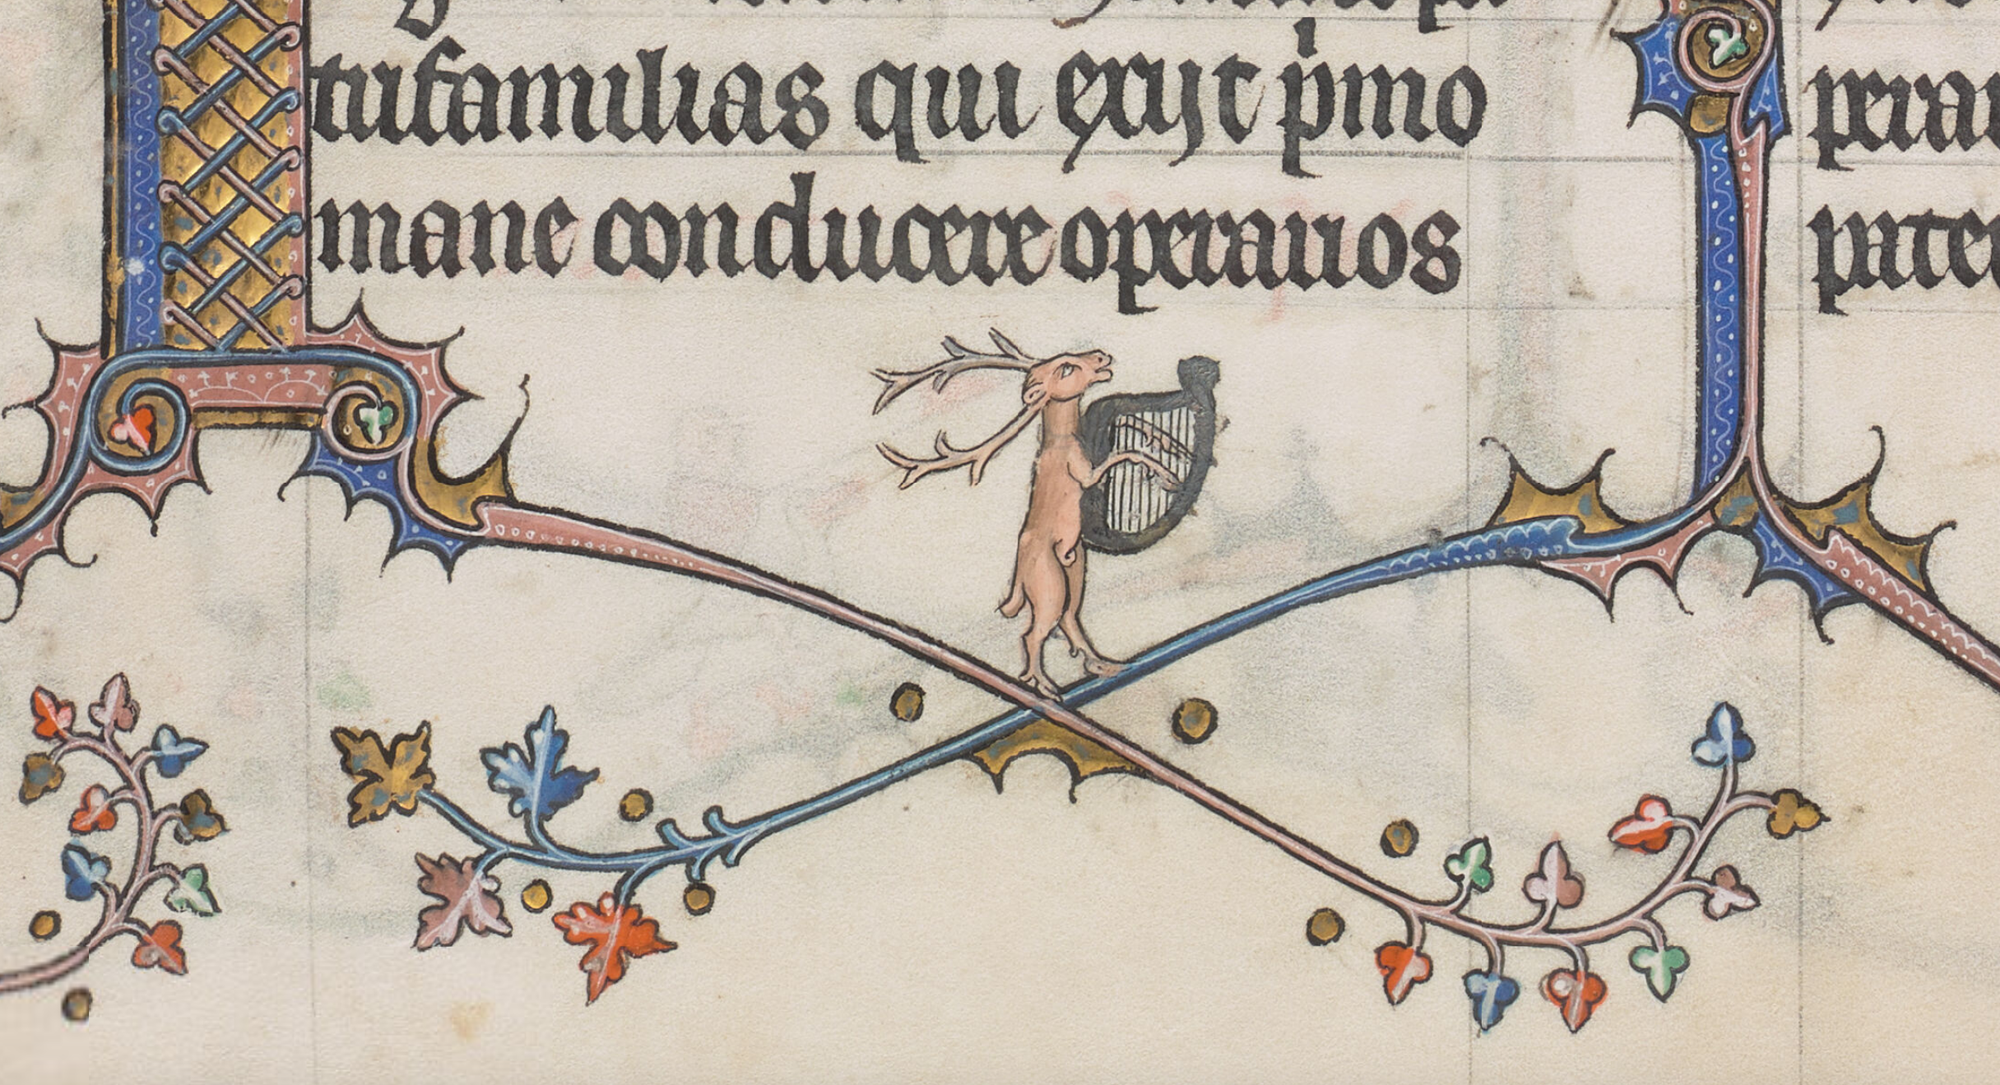 trifamilias qui exijt pmo
mane conducere operarios
perar
pater